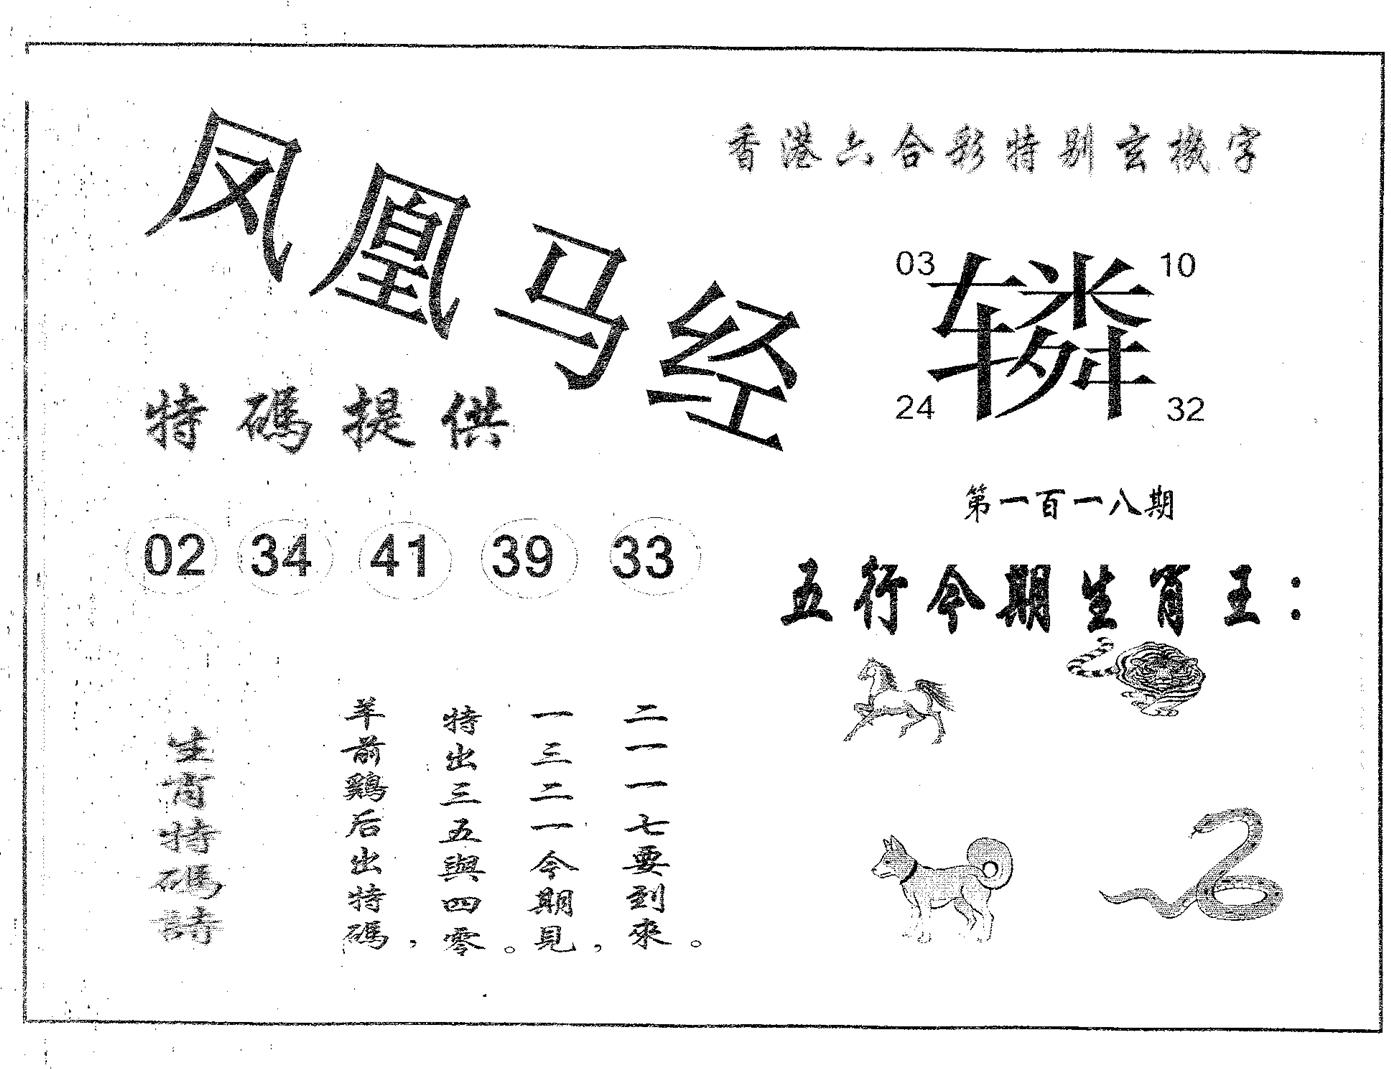 凤凰马经
香港六合彩特别玄機字
03 10
辚
24 32
特碼提供
第一百一八期
02 34 41 39 33
五行今期生肖王：
生肖特碼詩
羊前鷄后出特碼，
特出三五與四零。
一三二一今期見，
二一一七要到來。